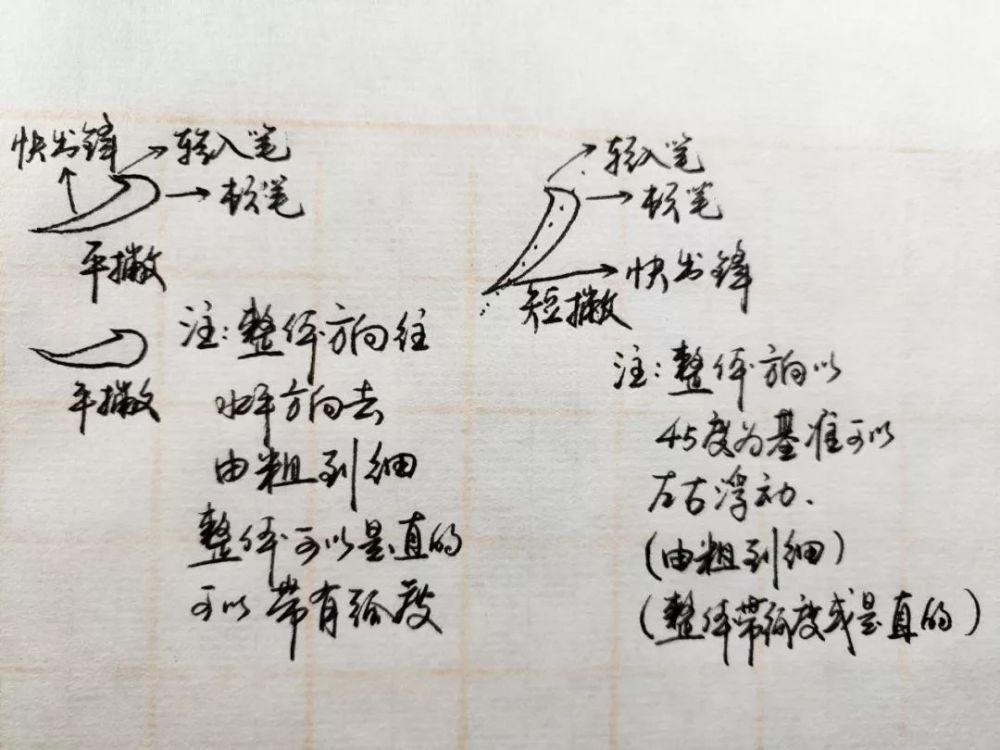 快出锋
轻入笔
顿笔
平撇
平撇
注:整体方向往
水平方向去
由粗到细
整体可以是直的
可以带有弧度
轻入笔
顿笔
快出锋
短撇
注:整体方向以
45度为基准可以
左右浮动.
(由粗到细)
(整体带弧度或是直的)